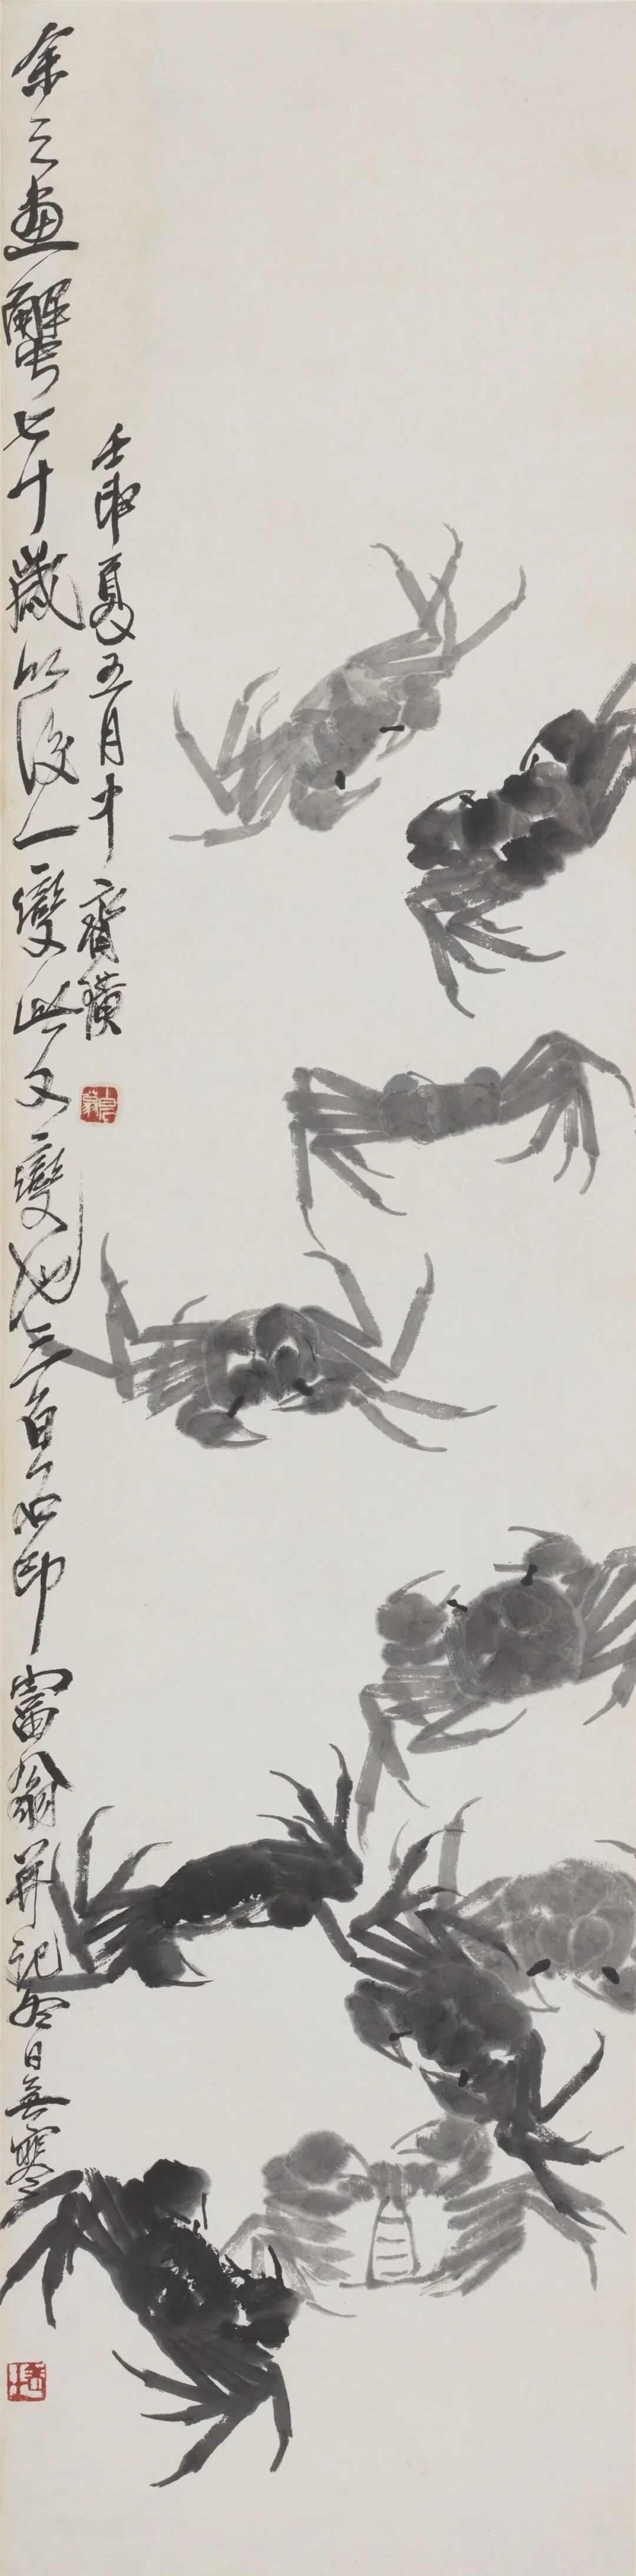 壬申夏五月中齊璜
余之畫蟹七十歲以後一變此又變也三百石印富翁并記日無寒